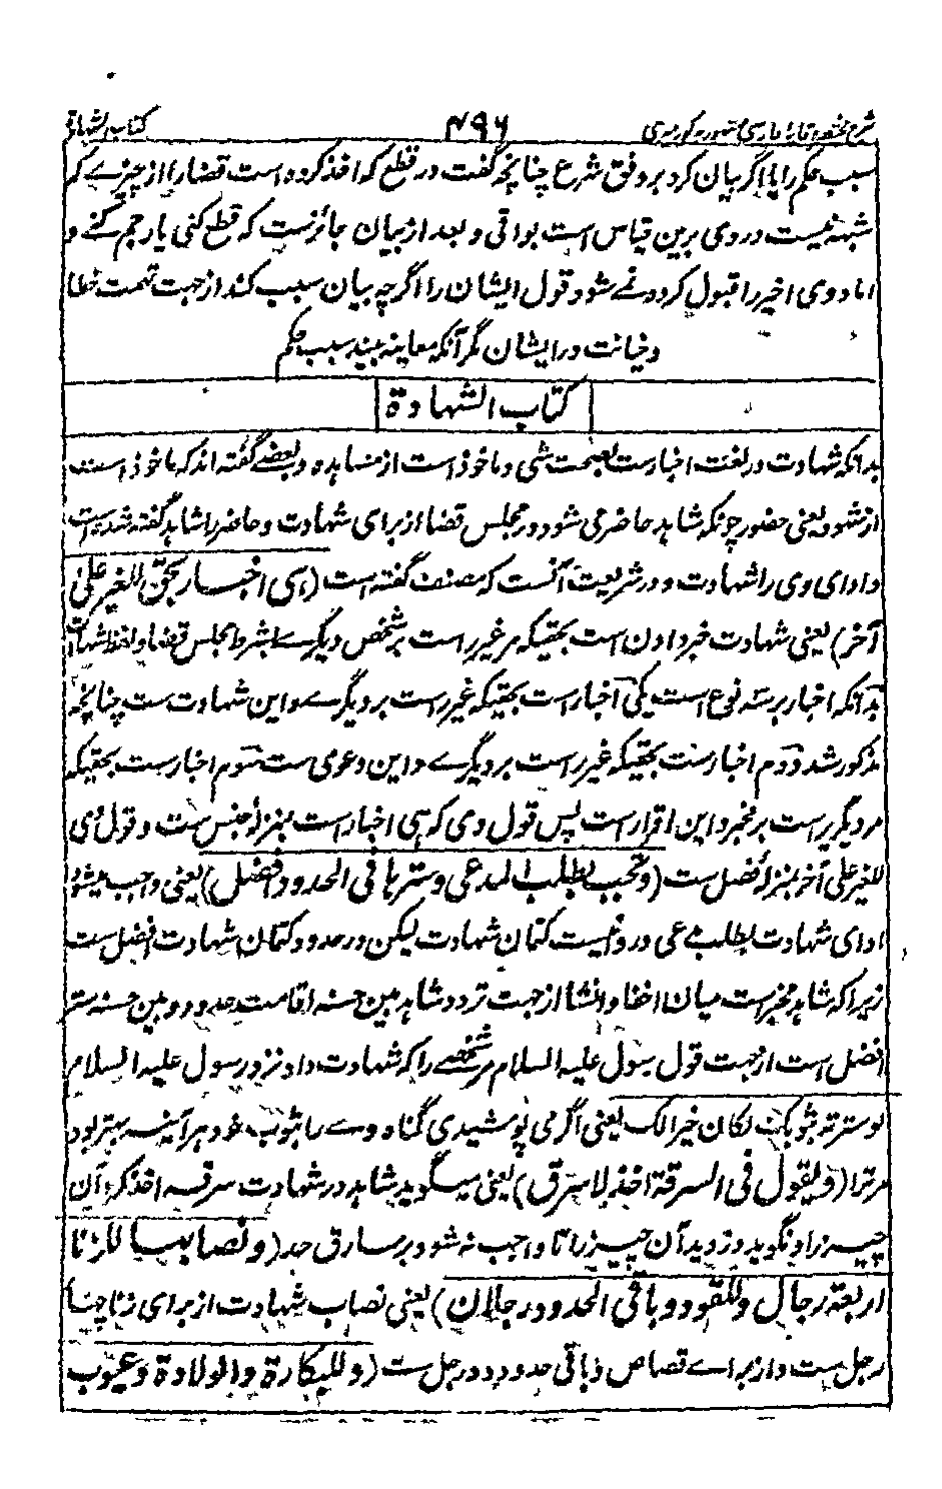 شرح مختصر وقایه فارسی مشهور بکور میری ۴۹۶ کتاب الشهادة
سبب حکم را یا اگر بیان کرد بر وفق شرع چنانچه گفت در قطع که اخذ کرده است قضا را از چیزے که
شبه نیست در وی برین قیاس است بواقی و بعد از بیان جائزست که قطع کنی یا رجم کنے و
اما دوی اخیر را قبول کرده نے شود قول ایشان را اگرچه بیان سبب کنند از جهت تهمت خطا
و خیانت در ایشان مگر آنکه معاینه بیند سبب حکم
کتاب الشهادة
بدانکه شهادت در لغت اخبارست بصحت شی و ماخوذ است از مشاهده و بعضے گفته اند که ماخوذ است
از شهود یعنی حضور چونکه شاهد حاضر می شود در مجلس قضا از برای شهادت و حاضر را شاهد گفته شده است
و ادای وی را شهادت و در شریعت آنست که مصنف گفته است (هی اخبار بحق للغیر علی
آخر) یعنی شهادت خبر دادن است بحقیکه مر غیر راست بر شخص دیگرے بشرط مجلس قضا و لفظ شهادت
بدانکه اخبار بر سه نوع است یکی اخبارست بحقیکه غیر راست بر دیگرے و این شهادت ست چنانچه
مذکور شد دوم اخبارست بحقیکه غیر راست بر دیگرے و این دعوی ست سوم اخبارست بحقیکه
مر دیگر راست بر مخبر و این اقرار است پس قول وی که هی اخبار است بمنزلۂ جنس ست و قول وی
للغیر علی آخر بمنزلۂ فصل ست (و تجب بطلب المدعی و سترها فی الحدود افضل) یعنی واجب میشود
ادای شهادت بطلب مدعی و روا نیست کتمان شهادت لیکن در حدود کتمان شهادت افضل ست
زیراکه شاهد مخیرست میان اخفا و افشا از جهت تردد شاهد بین حسنه اقامت حدود و بین حسنه ستر
افضل است از جهت قول رسول علیه السلام مر شخصے را که شهادت داد نزد رسول علیه السلام
لو سترته بثوبک لکان خیرا لک یعنی اگر می پوشیدی گناه وے را بثوب خود هر آینه بهتر بود
مر ترا (و یقول فی السرقة اخذ لا سرق) یعنی میگوید شاهد در شهادت سرقه اخذ کرد آن
چیز را و نگوید دزدید آن چیز را تا واجب نه شود بر سارق حد (و نصابها للزنا
اربعة رجال و للقود و باقی الحدود رجلان) یعنی نصاب شهادت از برای زنا چهار
رجل ست و از براے قصاص و باقی حدود دو رجل ست (و للبکارة و الولادة و عیوب